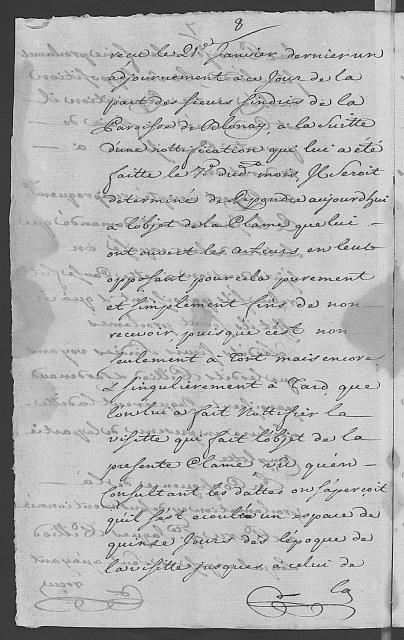 8
recû le 21.e Janvier dernier un
adjournement à ce Jour de la
part des sieurs sindics de la
Paroisse de Blonay, à la Suitte
d'une nottification qui lui a été
faitte le 7.e dud.t mois, Il Seroit
determiné de repondre aujourdhui
à lobjet de la Clame que lui
ont ouvert les acteurs en leur
opposant pour cela purement
et simplement fins de non
recevoir, puisque c'est non
seulement à Tort mais encore
singulièrement à Tard que
l'on lui a fait Nottifier la
visitte qui fait lobjet de la
presente Clame vû qu'en
Consultant les dattes on s'aperçoit
qu'il s'est ecoulé un espace de
quinse Jours dès lepoque de
la visitte jusques à celui de
la